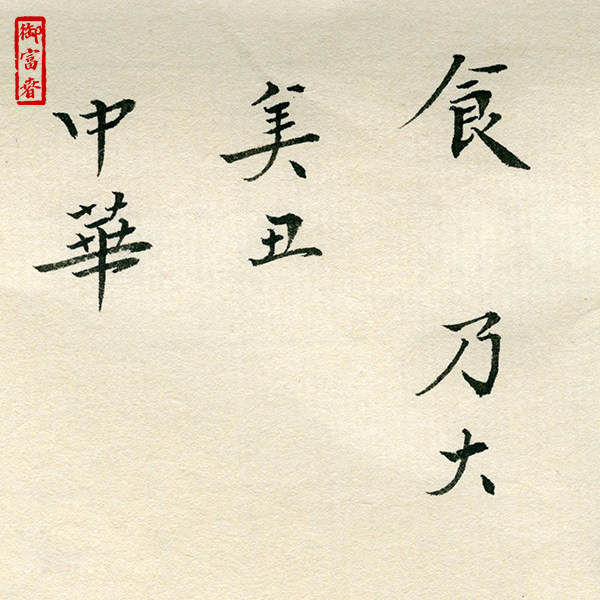 食 乃大
美丑
中華
御富春